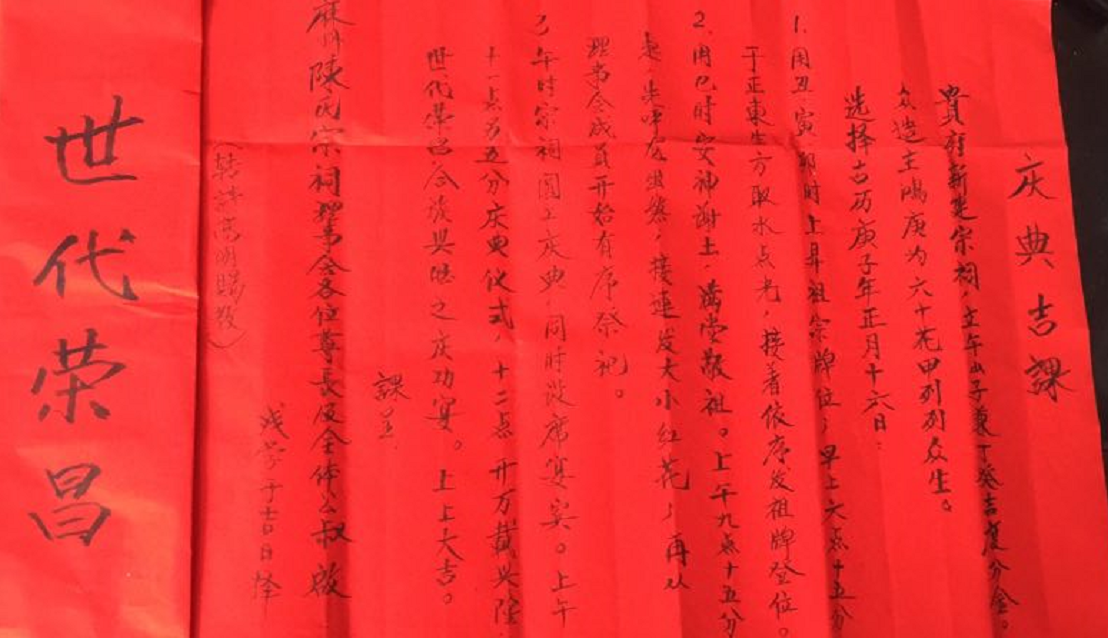 庆典吉課
貴府新建宗祠，立午山子兼丁癸吉度分金。
众造主鴻庚为六十花甲列列众生。
选择吉历庚子年正月十六日：
1. 用丑寅卯时上昇祖宗牌位，早上六点十五分
于正東生方取水点光，接着依序发祖牌登位。
2. 用巳时安神谢土，满堂敬祖。上午九点十五分
接連发大小红花，再以
理事会成員开始有席祭祀。
3 午时宗祠圆工庆典，同时设席宴宾。上午
十一点五分庆典仪式，十二点开万载兴隆
世代荣昌合族
之庆功宴。上上大吉。
課呈
陳氏宗祠理事会各位尊長及全体公叔啟
吉日择
世代荣昌